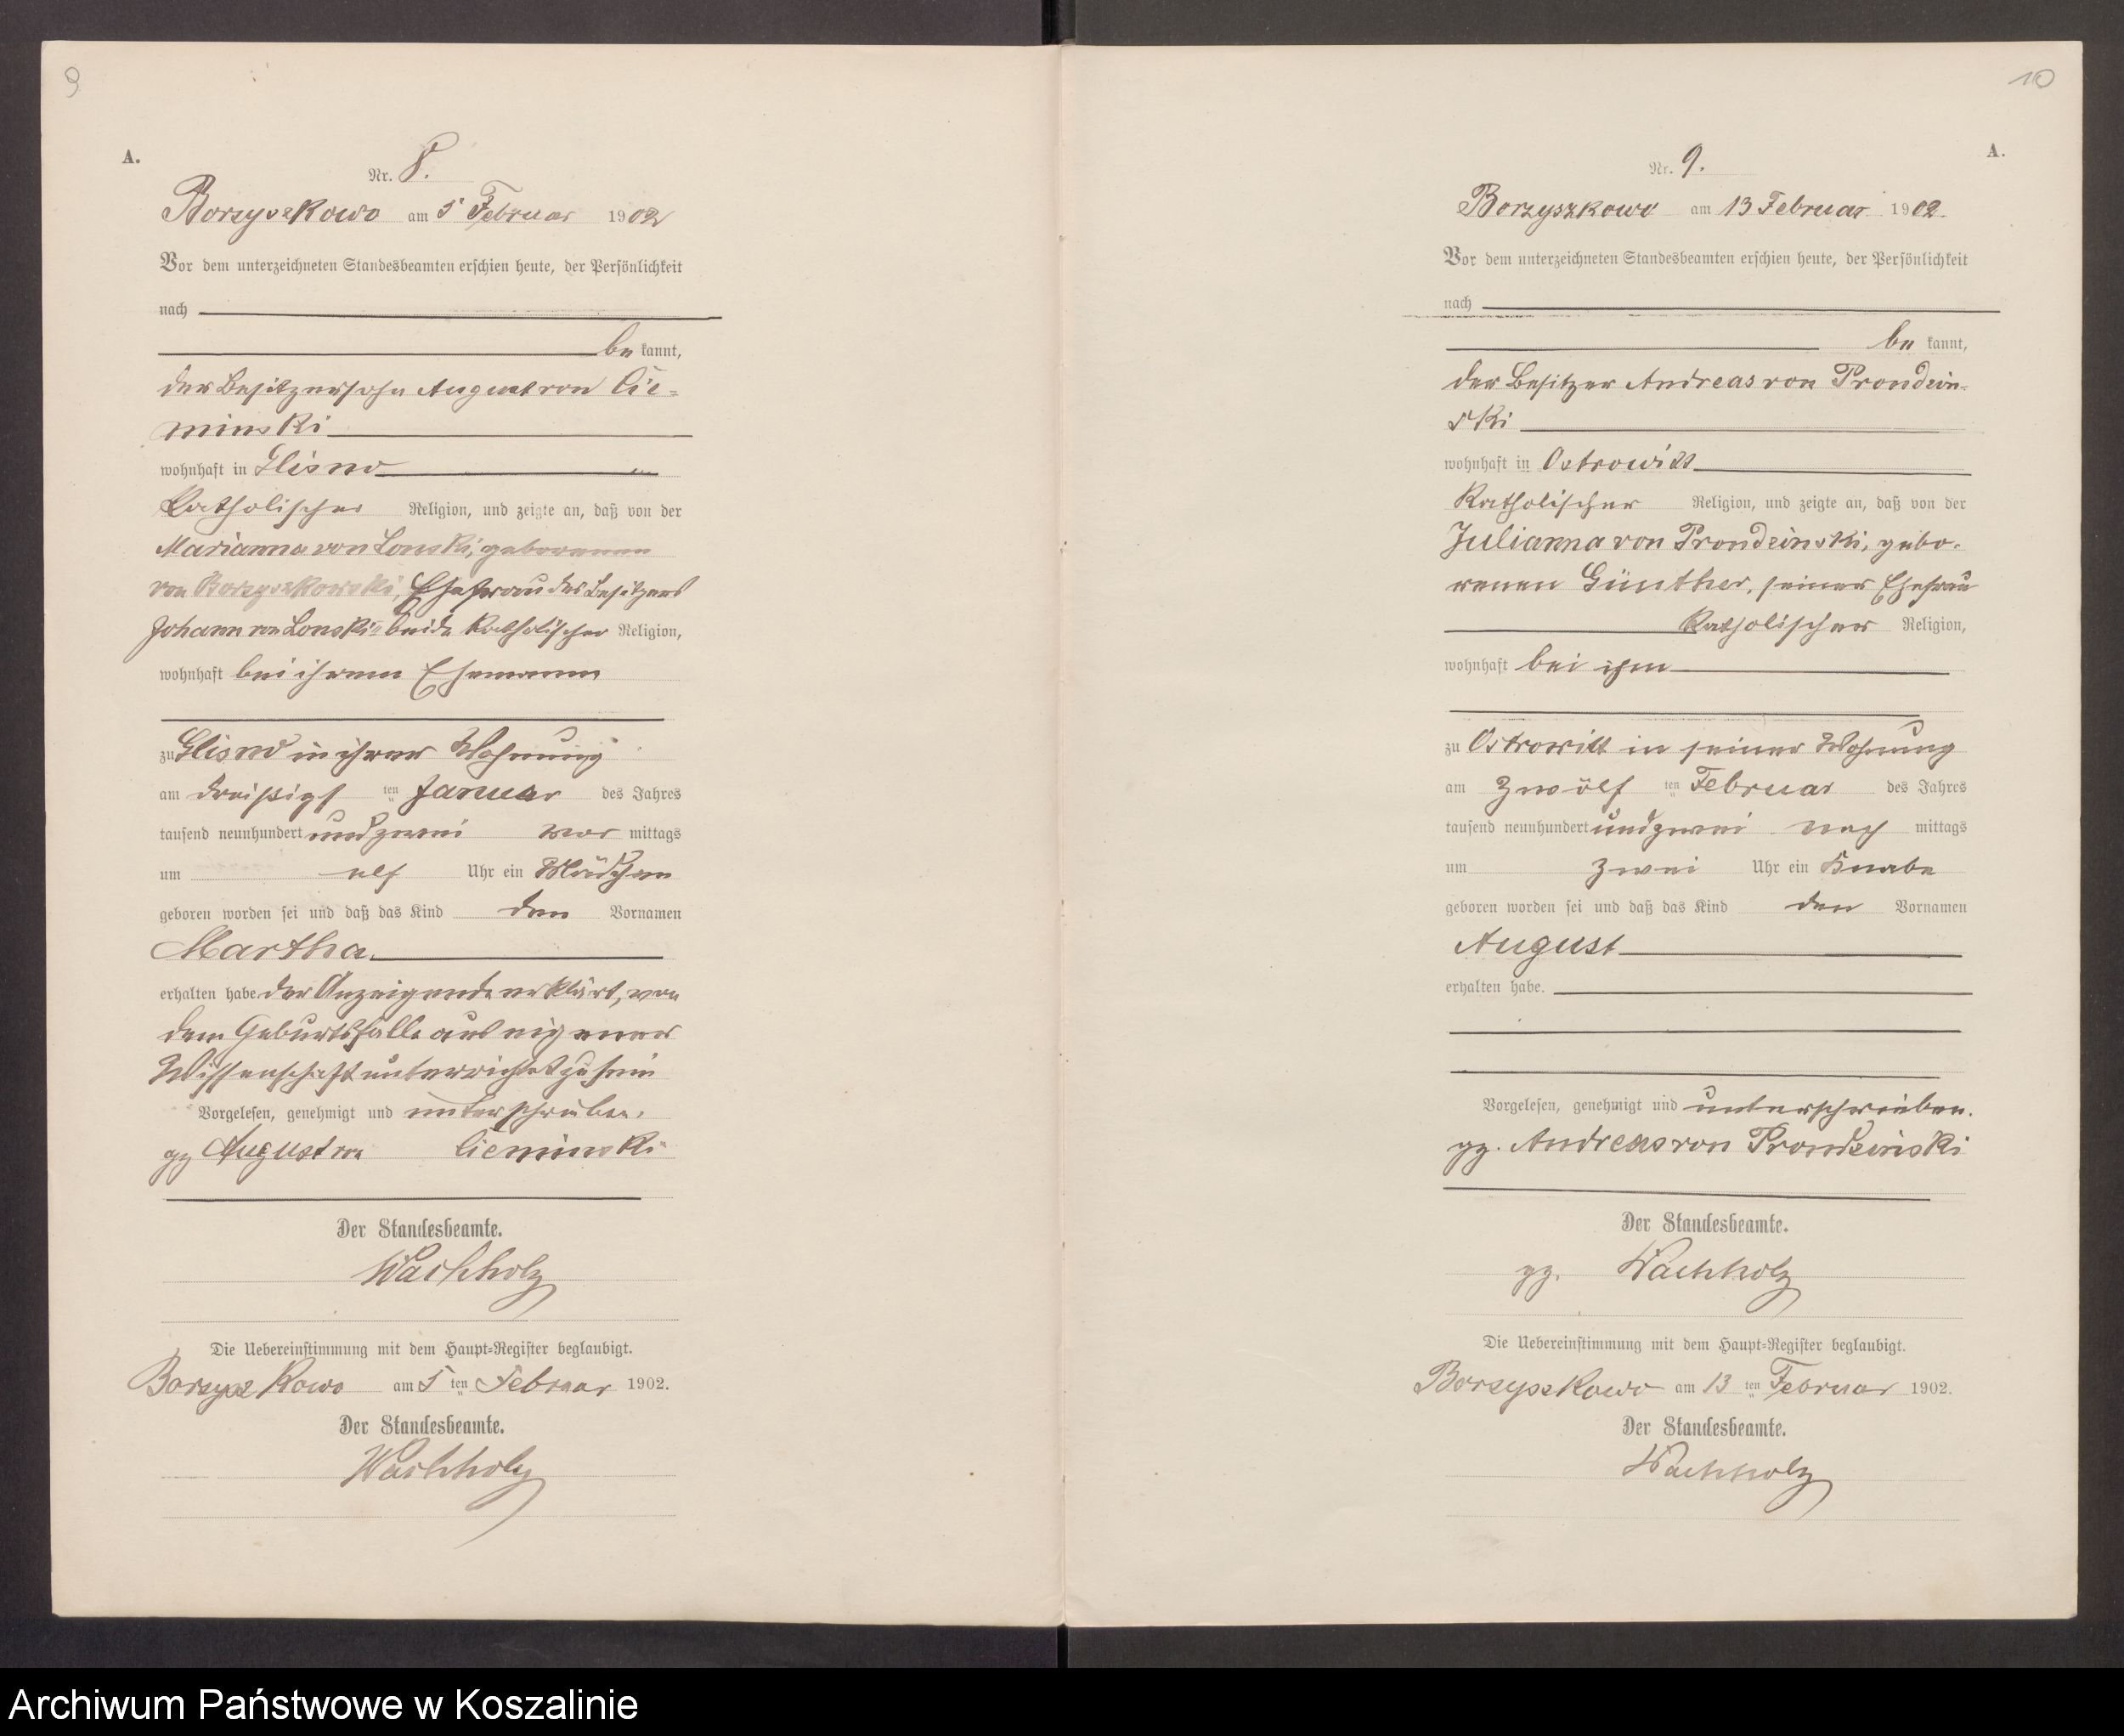 9
A.
Nr. 8.
Borzyszkowo am 5 Februar 1902
Vor dem unterzeichneten Standesbeamten erschien heute, der Persönlichkeit
nach
be kannt,
der Besitzersohn August von Cie-
minski
wohnhaft in Glisno
katholischer Religion, und zeigte an, daß von der
Marianna von Lonski, geborenen
von Borzyszkowski, Ehefrau des Besitzers
Johann von Lonski beide katholischer Religion,
wohnhaft bei ihrem Ehemann
zu Glisno in ihrer Wohnung
am dreißigs ten Januar des Jahres
tausend neunhundert und zwei vor mittags
um elf Uhr ein Mädchen
geboren worden sei und daß das Kind den Vornamen
Martha
erhalten habe der Anzeigende erklärt, von
dem Geburtsfalle aus eigener
Wissenschaft unterrichtet zu sein
Vorgelesen, genehmigt und unterschrieben.
gz August von Cieminski
Der Standesbeamte.
Wachholz
Die Uebereinstimmung mit dem Haupt-Register beglaubigt.
Borzyszkowo am 5 ten Februar 1902.
Der Standesbeamte.
Wachholz
10
A.
Nr. 9.
Borzyszkowo am 13 Februar 1902.
Vor dem unterzeichneten Standesbeamten erschien heute, der Persönlichkeit
nach
be kannt,
der Besitzer Andreas von Prondzin-
ski
wohnhaft in Ostrowitt
katholischer Religion, und zeigte an, daß von der
Julianna von Prondzinski, gebo-
renen Günther, seiner Ehefrau
katholischer Religion,
wohnhaft bei ihm
zu Ostrowitt in seiner Wohnung
am zwölf ten Februar des Jahres
tausend neunhundert und zwei nach mittags
um zwei Uhr ein Knabe
geboren worden sei und daß das Kind den Vornamen
August
erhalten habe.
Vorgelesen, genehmigt und unterschrieben.
gz. Andreas von Prondzinski
Der Standesbeamte.
gz. Wachholz
Die Uebereinstimmung mit dem Haupt-Register beglaubigt.
Borzyszkowo am 13 ten Februar 1902.
Der Standesbeamte.
Wachholz
Archiwum Państwowe w Koszalinie